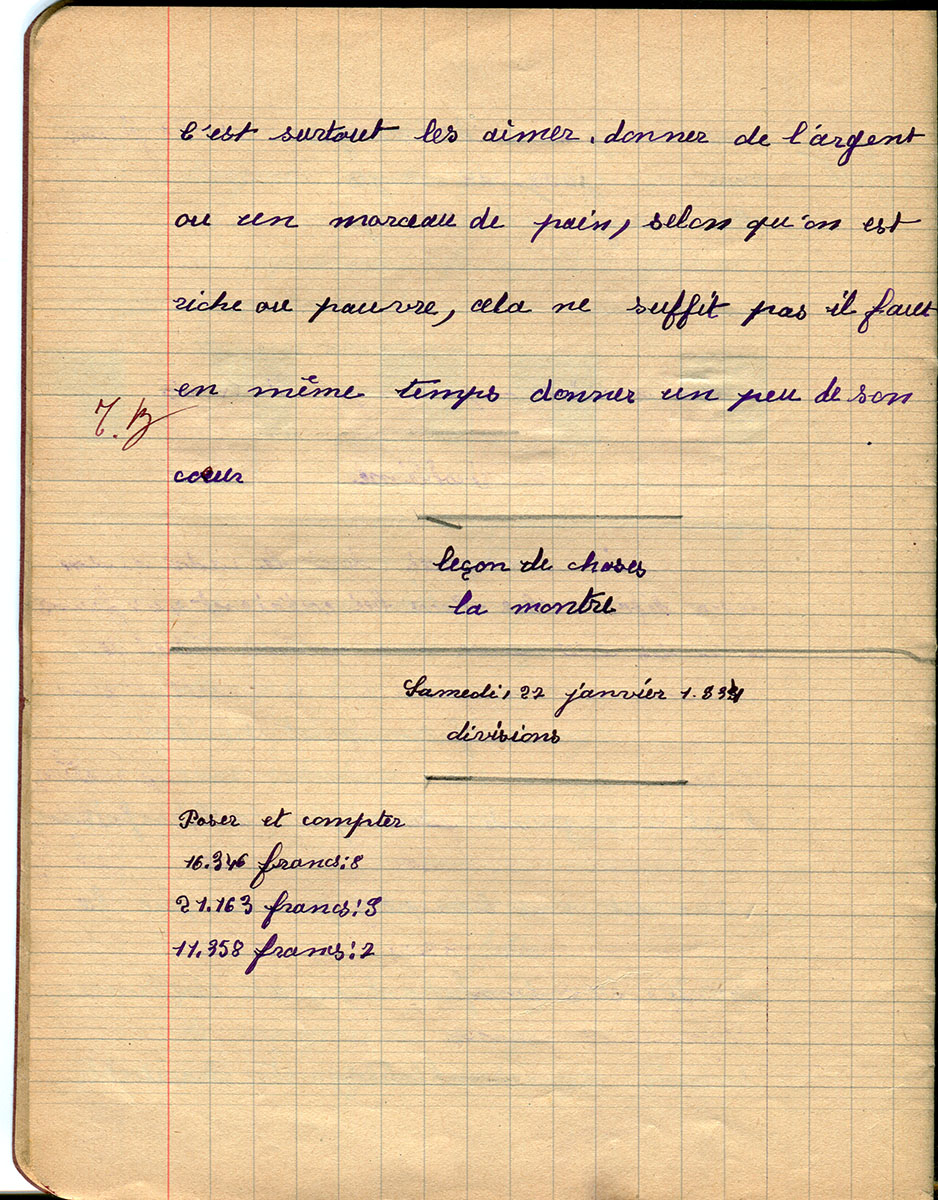 c'est surtout les aimer. donner de l'argent
ou un morceau de pain, selon qu'on est
riche ou pauvre, cela ne suffit pas il faut
en même temps donner un peu de son
T.B
cœur
leçon de choses
la montre
Samedi, 22 janvier
divisions
Poser et compter
16.346 francs:8
21.163 francs:9
11.358 francs:2